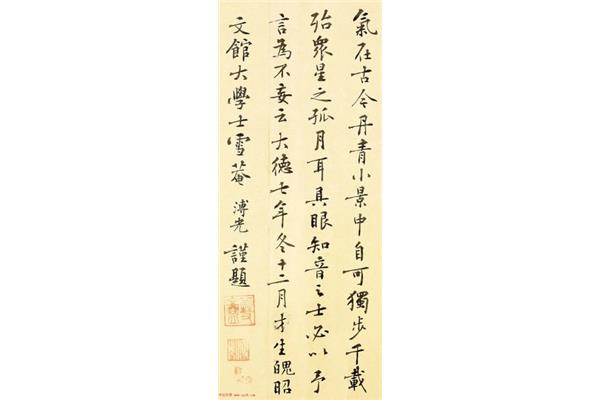 氣在古今丹青小景中自可獨步千載
殆眾星之孤月耳具眼知音之士必以予
言為不妄云大德七年冬十二月才生魄昭
文館大學士雪菴溥光謹題